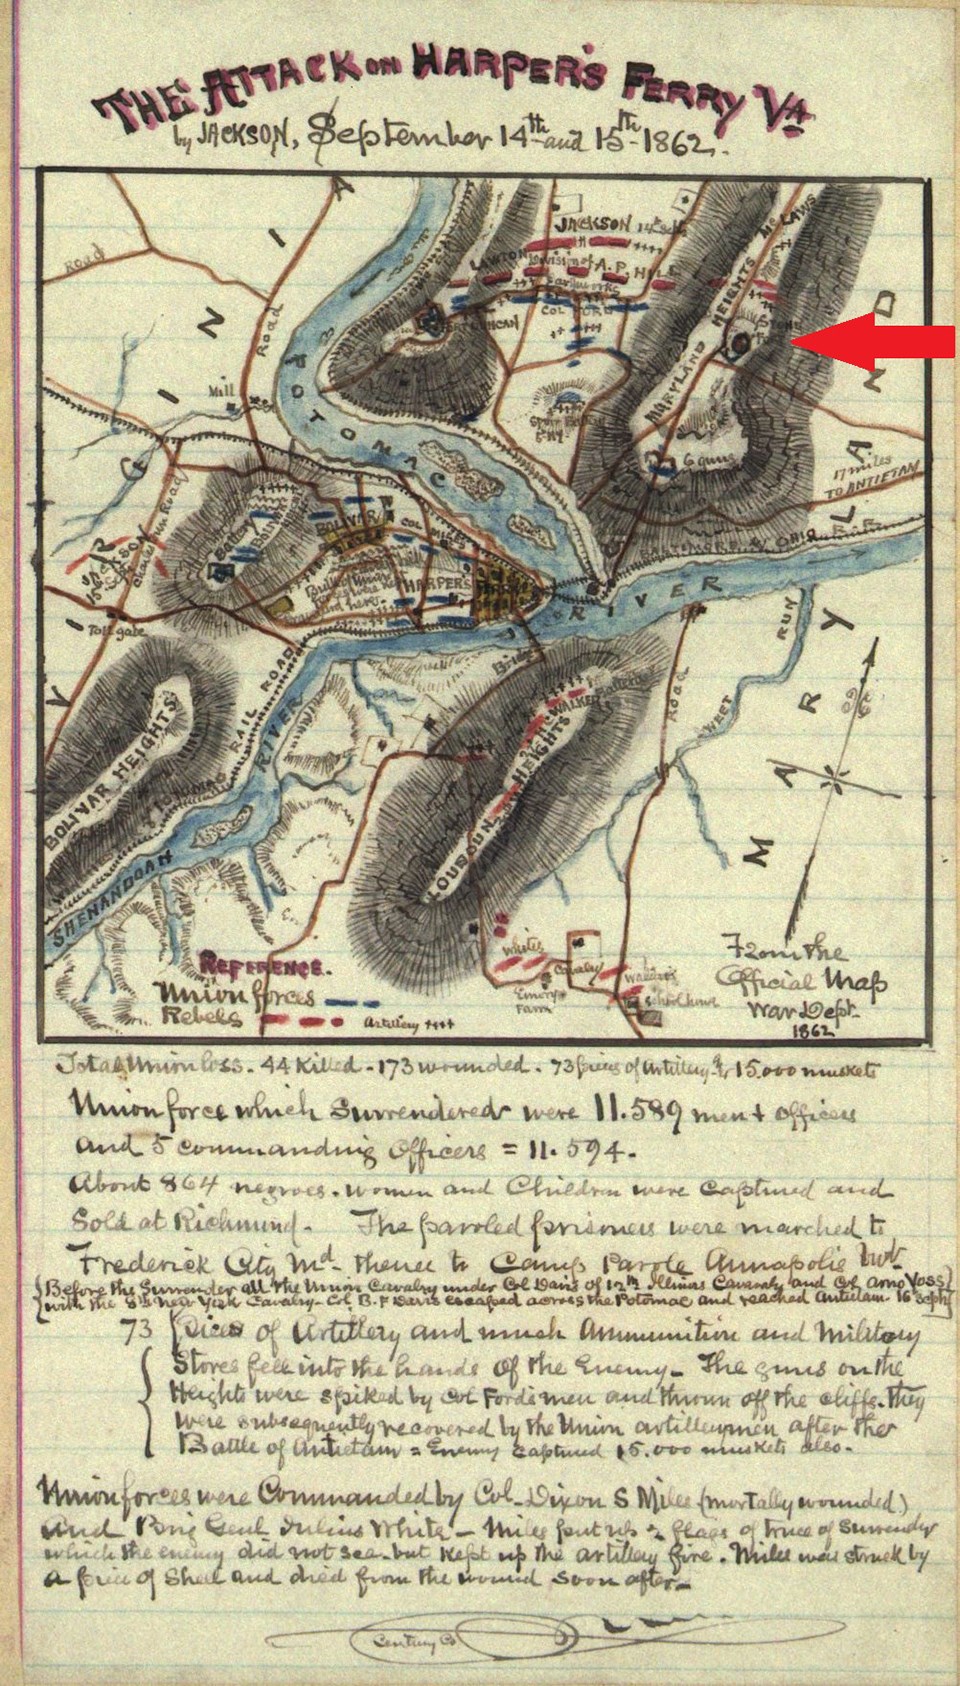 THE ATTACK ON HARPER'S FERRY VA
by JACKSON, September 14th and 15th 1862.
VIRGINIA
MARYLAND
Road
Road
Mill
POTOMAC
JACKSON 14th Sept
LAWTON
Division of A. P. HILL
Earthworks
COL FORD
McLAWS
MARYLAND HEIGHTS
STONE
6 guns
17 miles
TO ANTIETAM
BALTIMORE & OHIO R.R.
RIVER
BOLIVAR
COL MILES
HARPERS
FERRY
Battery
JACKSON
15th Sept
Road
Toll gate
Bridge
BOLIVAR HEIGHTS
RAIL ROAD
SHENANDOAH
RIVER
LOUDOUN HEIGHTS
WALKER
Batteries
Road
SWEET
RUN
White's
Cavalry
Emory's
Farm
Walker's
School house
REFERENCE.
Union forces
Rebels
Artillery
From the
Official Map
War Dept.
1862
Total Union loss. 44 killed - 173 wounded - 73 pieces of Artillery & 15.000 muskets
Union force which Surrendered were 11.589 men & officers
and 5 commanding Officers = 11.594.
About 864 negroes. women and Children were captured and
Sold at Richmond - The paroled prisoners were marched to
Frederick City Md thence to Camp Parole Annapolis
Before the Surrender all the Union Cavalry under Col Davis of 12th Illinois Cavalry and Col Arno Voss
with the 8th New York Cavalry - Col B. F Davis escaped across the Potomac and reached Antietam 16 Sept
73 Pieces of Artillery and much Ammunition and Military
Stores fell into the hands of the Enemy - The guns on the
Heights were spiked by Col Fords men and thrown off the cliffs. they
were subsequently recovered by the Union artillerymen after the
Battle of Antietam = Enemy captured 15.000 muskets also.
Union forces were Commanded by Col - Dixon S Miles (mortally wounded)
and Brig Genl Julius White - Miles put up a flag of truce of Surrender
which the enemy did not see - but kept up the artillery fire. Miles was struck by
a piece of Shell and died from the wound soon after -
Century Co